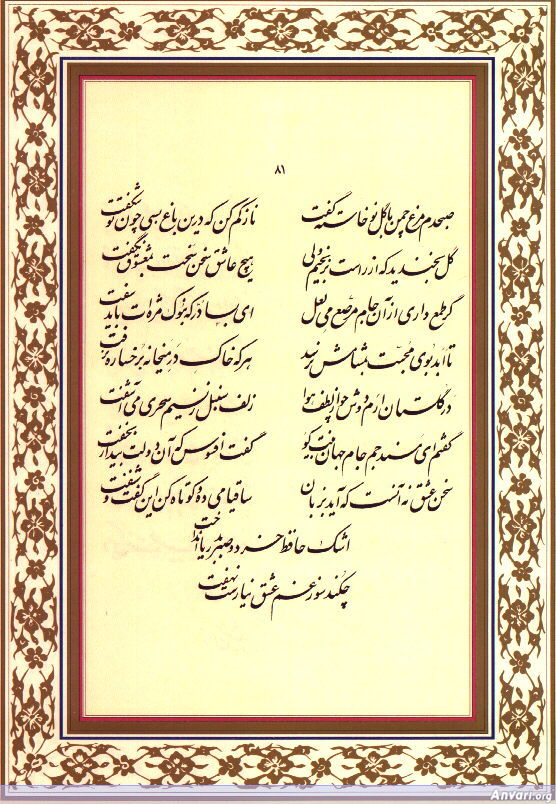 ۸۱
صبحدم مرغ چمن با گل نوخاسته گفت ناز کم کن که درین باغ بسی چون تو شکفت
گل بخندید که از راست نرنجیم ولی هیچ عاشق سخن سخت بمعشوق نگفت
گر طمع داری از آن جام مرصع می لعل ای بسا در که بنوک مژه‌ات باید سفت
تا ابد بوی محبت بمشامش نرسد هر که خاک در میخانه برخساره نرفت
در گلستان ارم دوش چو از لطف هوا زلف سنبل ز نسیم سحری می آشفت
گفتم ای مسند جم جام جهان بینت کو گفت افسوس که آن دولت بیدار بخفت
سخن عشق نه آنست که آید بزبان ساقیا می ده و کوتاه کن این گفت و شنفت
اشک حافظ خرد و صبر بدریا انداخت
چکند سوز غم عشق نیارست نهفت
Anvari.org